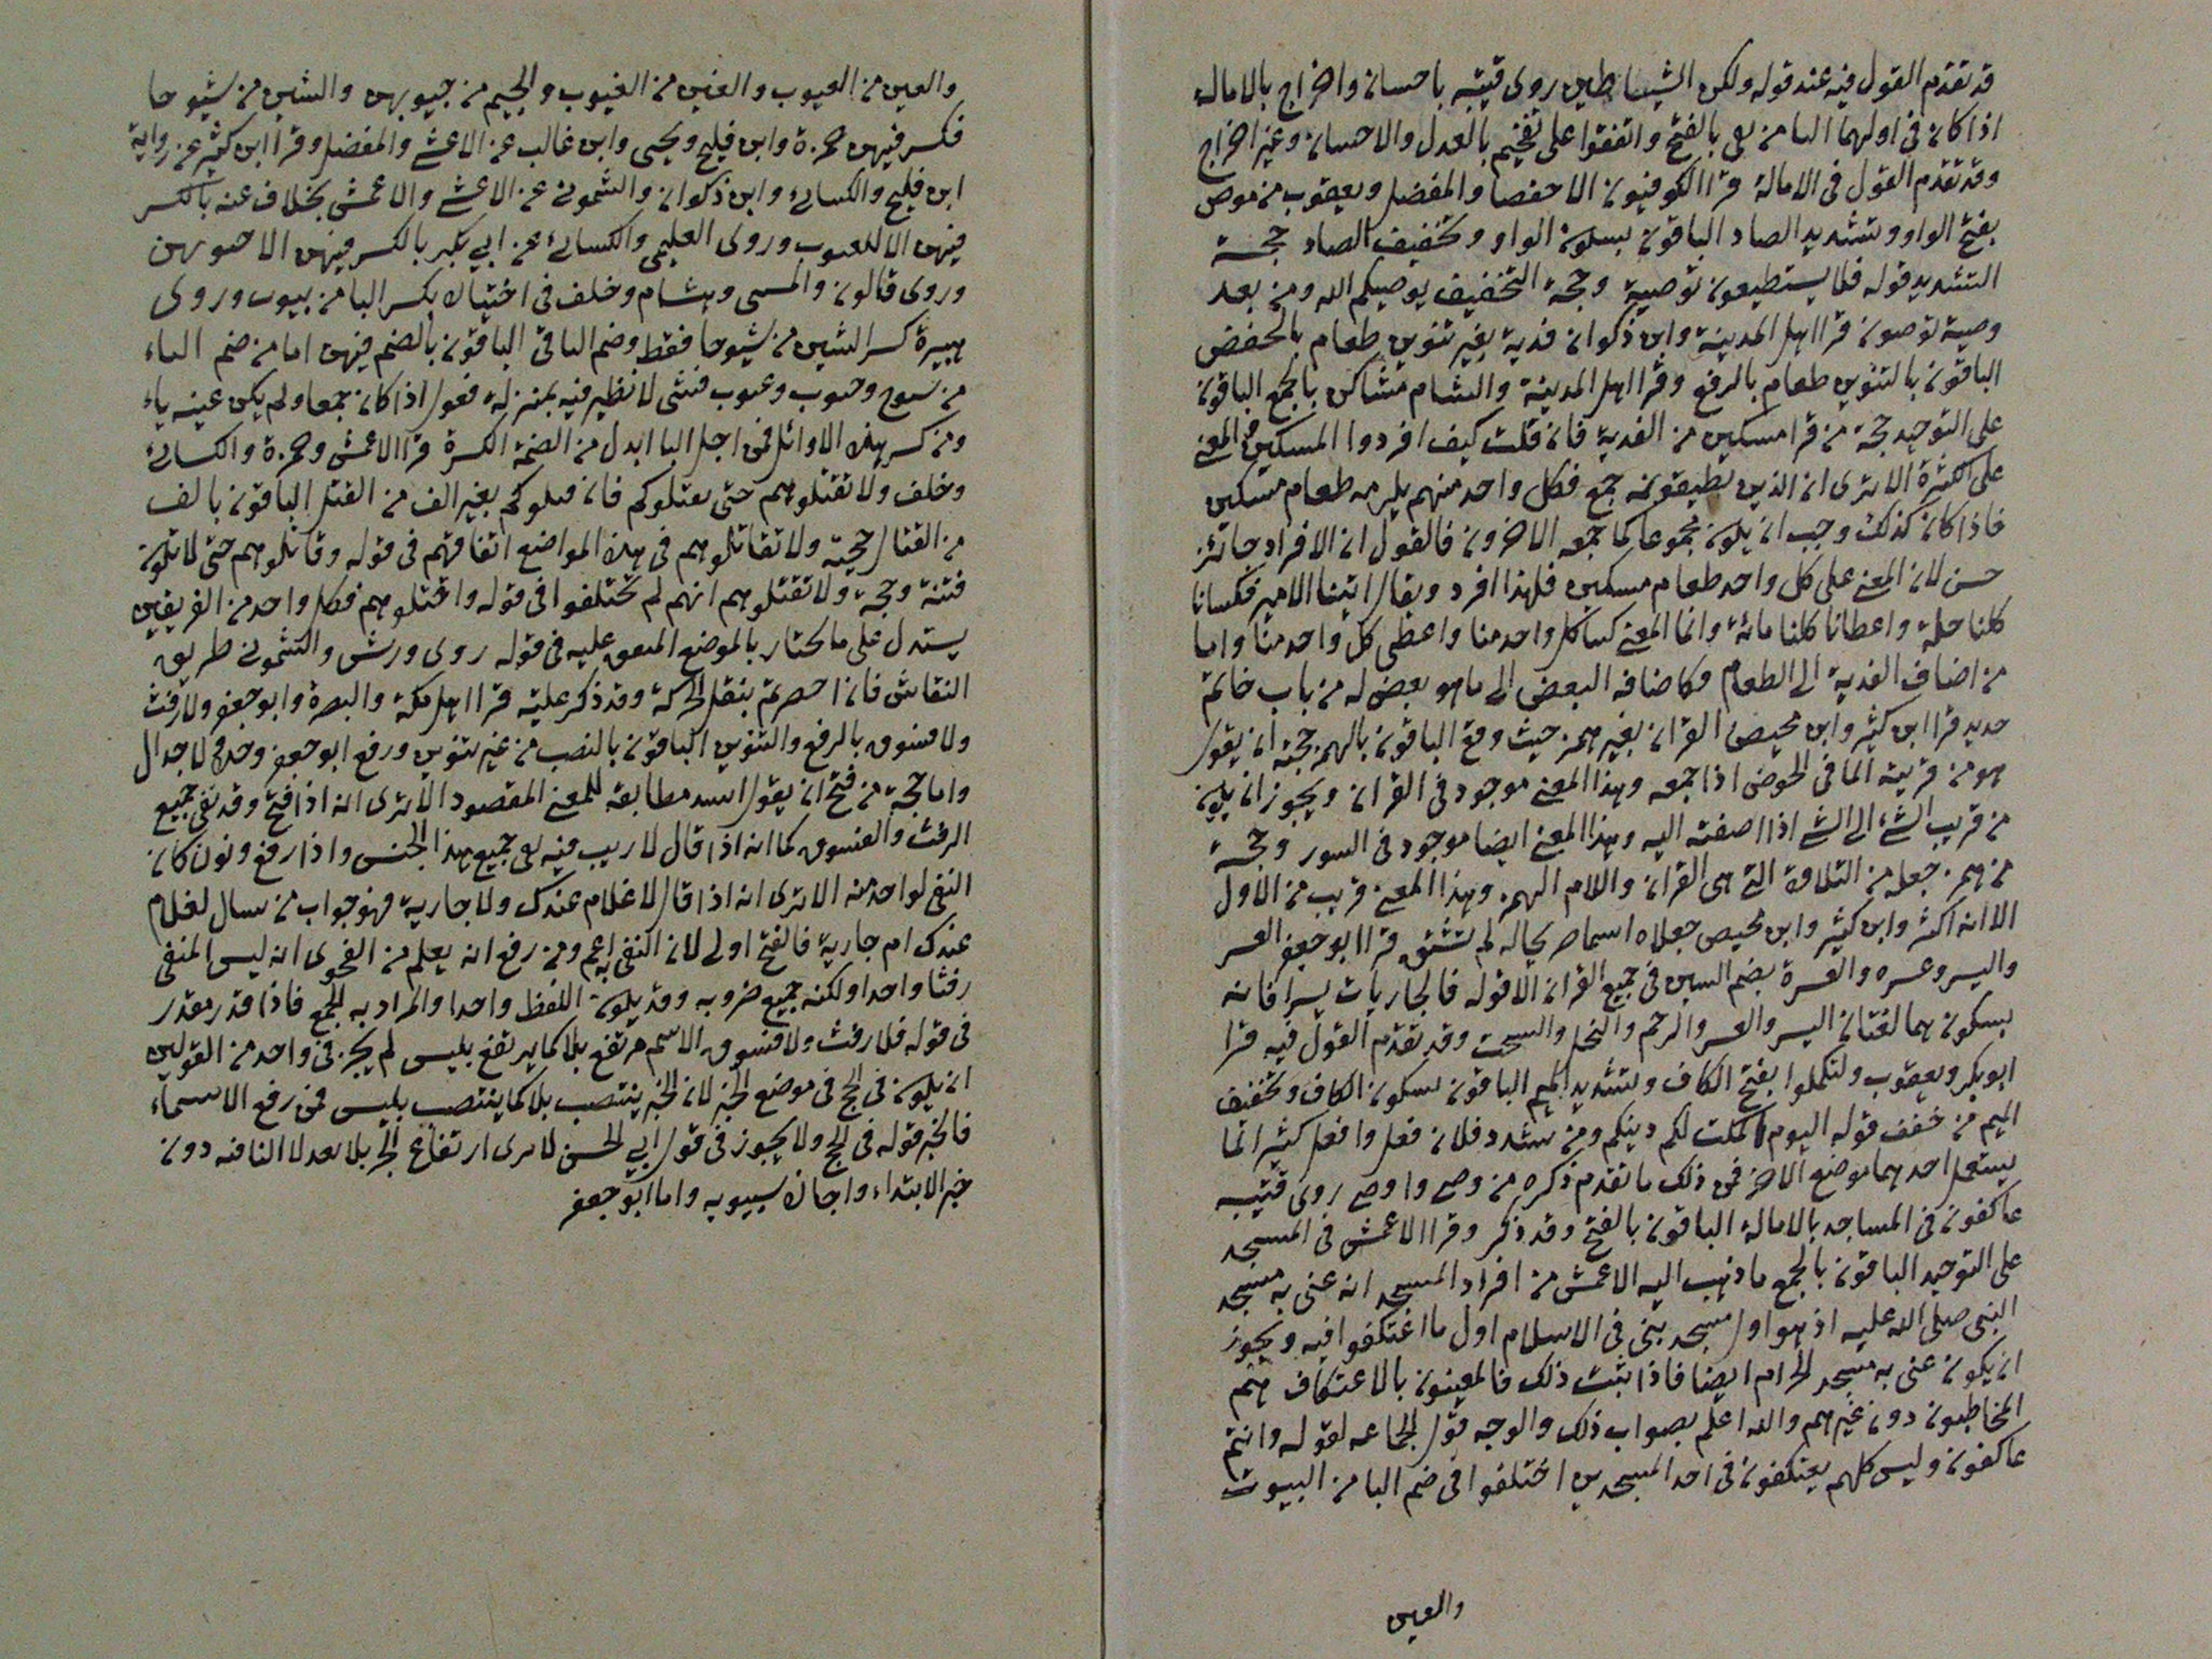 قد تقدم القول فيه عند قوله ولكن الشياطين روى قتيبه باحسان واخراج بالاماله
اذا كان في اولهما البا من بقي بالفتح واتفقوا على تفخيم بالعدل والاحسان وغير اخراج
وقد تقدم القول في الامالة قرا الكوفيون الا حفصا والمفضل ويعقوب من موص
بفتح الواو وتشديد الصاد الباقون بسكون الواو وتخفيف الصاد حجة
التشديد قوله فلا يستطيعون توصية وحجة التخفيف يوصيكم الله ومن بعد
وصية توصون قرا اهل المدينة وابن ذكوان فدية بغير تنوين طعام بالخفض
الباقون بالتنوين طعام بالرفع وقرا اهل المدينة والشام مساكن بالجمع الباقون
على التوحيد حجة من قرا مسكين من الفدية فان قلت كيف افردوا المسكين في المعنى
على الكثرة الا ترى ان الذين يطيقونه جمع فكل واحد منهم يلزمه طعام مسكين
فاذا كان كذلك وجب ان يكون مجموعا كما جمعه الاخرون فالقول ان الافراد جائز
حسن لان المعنى على كل واحد طعام مسكين فلهذا افرد ويقال اتينا الامير فكسانا
كلنا حلة واعطانا كلنا مائة وانما المعنى كسا كل واحد منا واعطى كل واحد منا واما
من اضاف الفدية الى الطعام فكاضافه البعض الى ما هو بعض له من باب خاتم
حديد قرا ابن كثير وابن محيصن القران بغير همز حيث وقع الباقون بالهمز حجة ان يقول
هو من قريت الما في الحوض اذا جمعه وهذا المعنى موجود في القران ويجوز ان يكون
من قريب الشئ الى الشئ اذا اضفته اليه وهذا المعنى ايضا موجود في السور وحجة
من همز جعله من التلاوة التي هي القران واللام الهمز وهذا المعنى قريب من الاول
الا انه اكثر وابن كثير وابن محيص جعلاه اسما بحياله لم تشتق قرا ابو جعفر العسر
واليسر وعسره والعسرة بضم السين في جميع القران الا قوله فالجاريات يسرا فانه
بسكون هما لغتان اليسر والعسر والرحم والنحل والسحت وقد تقدم القول فيه قرا
ابوبكر ويعقوب ولتكملوا بفتح الكاف وتشديد الميم الباقون بسكون الكاف وتخفيف
الميم من خفف قوله اليوم اكملت لكم دينكم ومن شدد فلان فعل وافعل كثيرا ما
يستعمل احدهما موضع الاخر فمن ذلك ما تقدم ذكره من وصى واوصى روى قتيبه
عاكفون في المساجد بالامالة الباقون بالفتح وقد ذكر وقرا الاعمش في المسجد
على التوحيد الباقون بالجمع ما ذهب اليه الاعمش من افراد المسجد انه عنى به مسجد
النبي صلى الله عليه اذ هو اول مسجد بني في الاسلام اول ما اعتكفوا فيه ويجوز
ان يكون عنى به مسجد الحرام ايضا فاذا ثبت ذلك فالمعينون بالاعتكاف هم
المخاطبون دون غيرهم والله اعلم بصواب ذلك والوجه قول الجماعه لقوله وانتم
عاكفون وليس كلهم يعتكفون في احد المسجدين اختلفوا في ضم البا من البيوت
والعين
والعين من العيوب والغين من الغيوب والجيم من جيوبهن والشين من شيوخا
فكسر فيهن حمزة وابن فليح ويحيى وابن غالب عن الاعشى والمفضل وقرا ابن كثير عن رواية
ابن فليح والكسائي وابن ذكوان والشموني عن الاعشى والاعمش بخلاف عنه بالكسر
فيهن الا الغيوب وروى العليمي والكسائي عن ابي بكر بالكسر فيهن الا جيوبهن
وروى قالون والمسيبي وهشام وخلف في اختياره بكسر البا من بيوت وروى
هبيرة كسر الشين من شيوخا فقط وضم الباقي الباقون بالضم فيهن اما من ضم الباء
من شيوخ وجيوب وعيوب فشئ لا نظير فيه بمنزلة فعول اذا كان جمعا ولم يكن عينه ياء
ومن كسر هذه الاوائل فمن اجل اليا ابدل من الضمة الكسرة قرا الاعمش وحمزة والكسائي
وخلف ولا تقتلوهم حتى يقتلوكم فان قتلوكم بغير الف من القتل الباقون بالف
من القتال حجة ولا تقاتلوهم في هذه المواضع اتفاقهم في قوله وقاتلوهم حتى لا تكون
فتنة وحجة ولا تقتلوهم انهم لم تختلفوا في قوله واقتلوهم فكل واحد من الفريقين
يستدل على ما يختار بالموضع المتفق عليه في قوله روى ورش والشموني طريق
النقاش فان احصرتم بنقل الحركة وقد ذكر علته قرا اهل مكة والبصرة وابو جعفر ولا رفث
ولا فسوق بالرفع والتنوين الباقون بالنصب من غير تنوين ورفع ابو جعفر وحده لا جدال
واما حجة من فتح ان يقول اشد مطابقة للمعنى المقصود الا ترى انه اذا فتح وقد نفى جميع
الرفث والفسوق كما انه اذا قال لا ريب فيه نفى جميع هذا الجنس واذا رفع ونون كان
النفي لواحد منه الا ترى انه اذا قال لا غلام عندك ولا جارية فهو جواب من سال لغلام
عندك ام جارية فالفتح اولى لان النفي به اعم ومن رفع انه يعلم من الفحوى انه ليس المنفي
رفثا واحدا ولكنه جميع ضروبه وقد يكون اللفظ واحدا والمراد به الجمع فاذا قدر مقدر
في قوله فلا رفث ولا فسوق الاسم مرتفع بلا كما يرتفع بليس لم يجز في واحد من القولين
ان يكون في الحج في موضع الخبر لان الخبر ينتصب بلا كما ينتصب بليس فمن رفع الاسماء
فالخبر قوله في الحج ولا يجوز في قول ابي الحسن لا يرى ارتفاع الخبر بلا بعد لا النافيه دون
خبر الابتداء واجازه سيبويه واما ابو جعفر